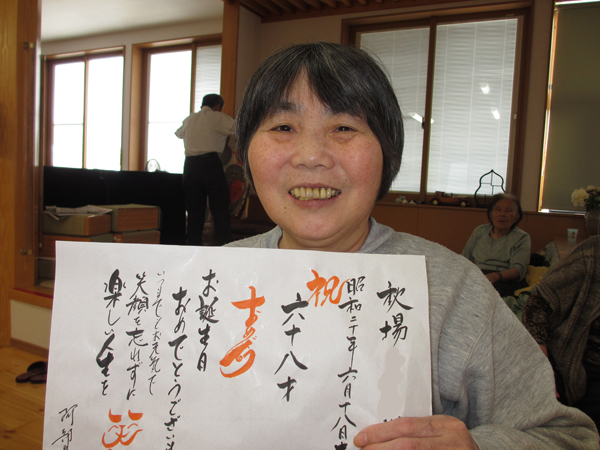 秋場
昭和二十年六月十八日
祝
六十八才
お誕生日
おめでとうござい
いつまでもお元気で
笑顔を忘れずに
楽しい人生を
阿部